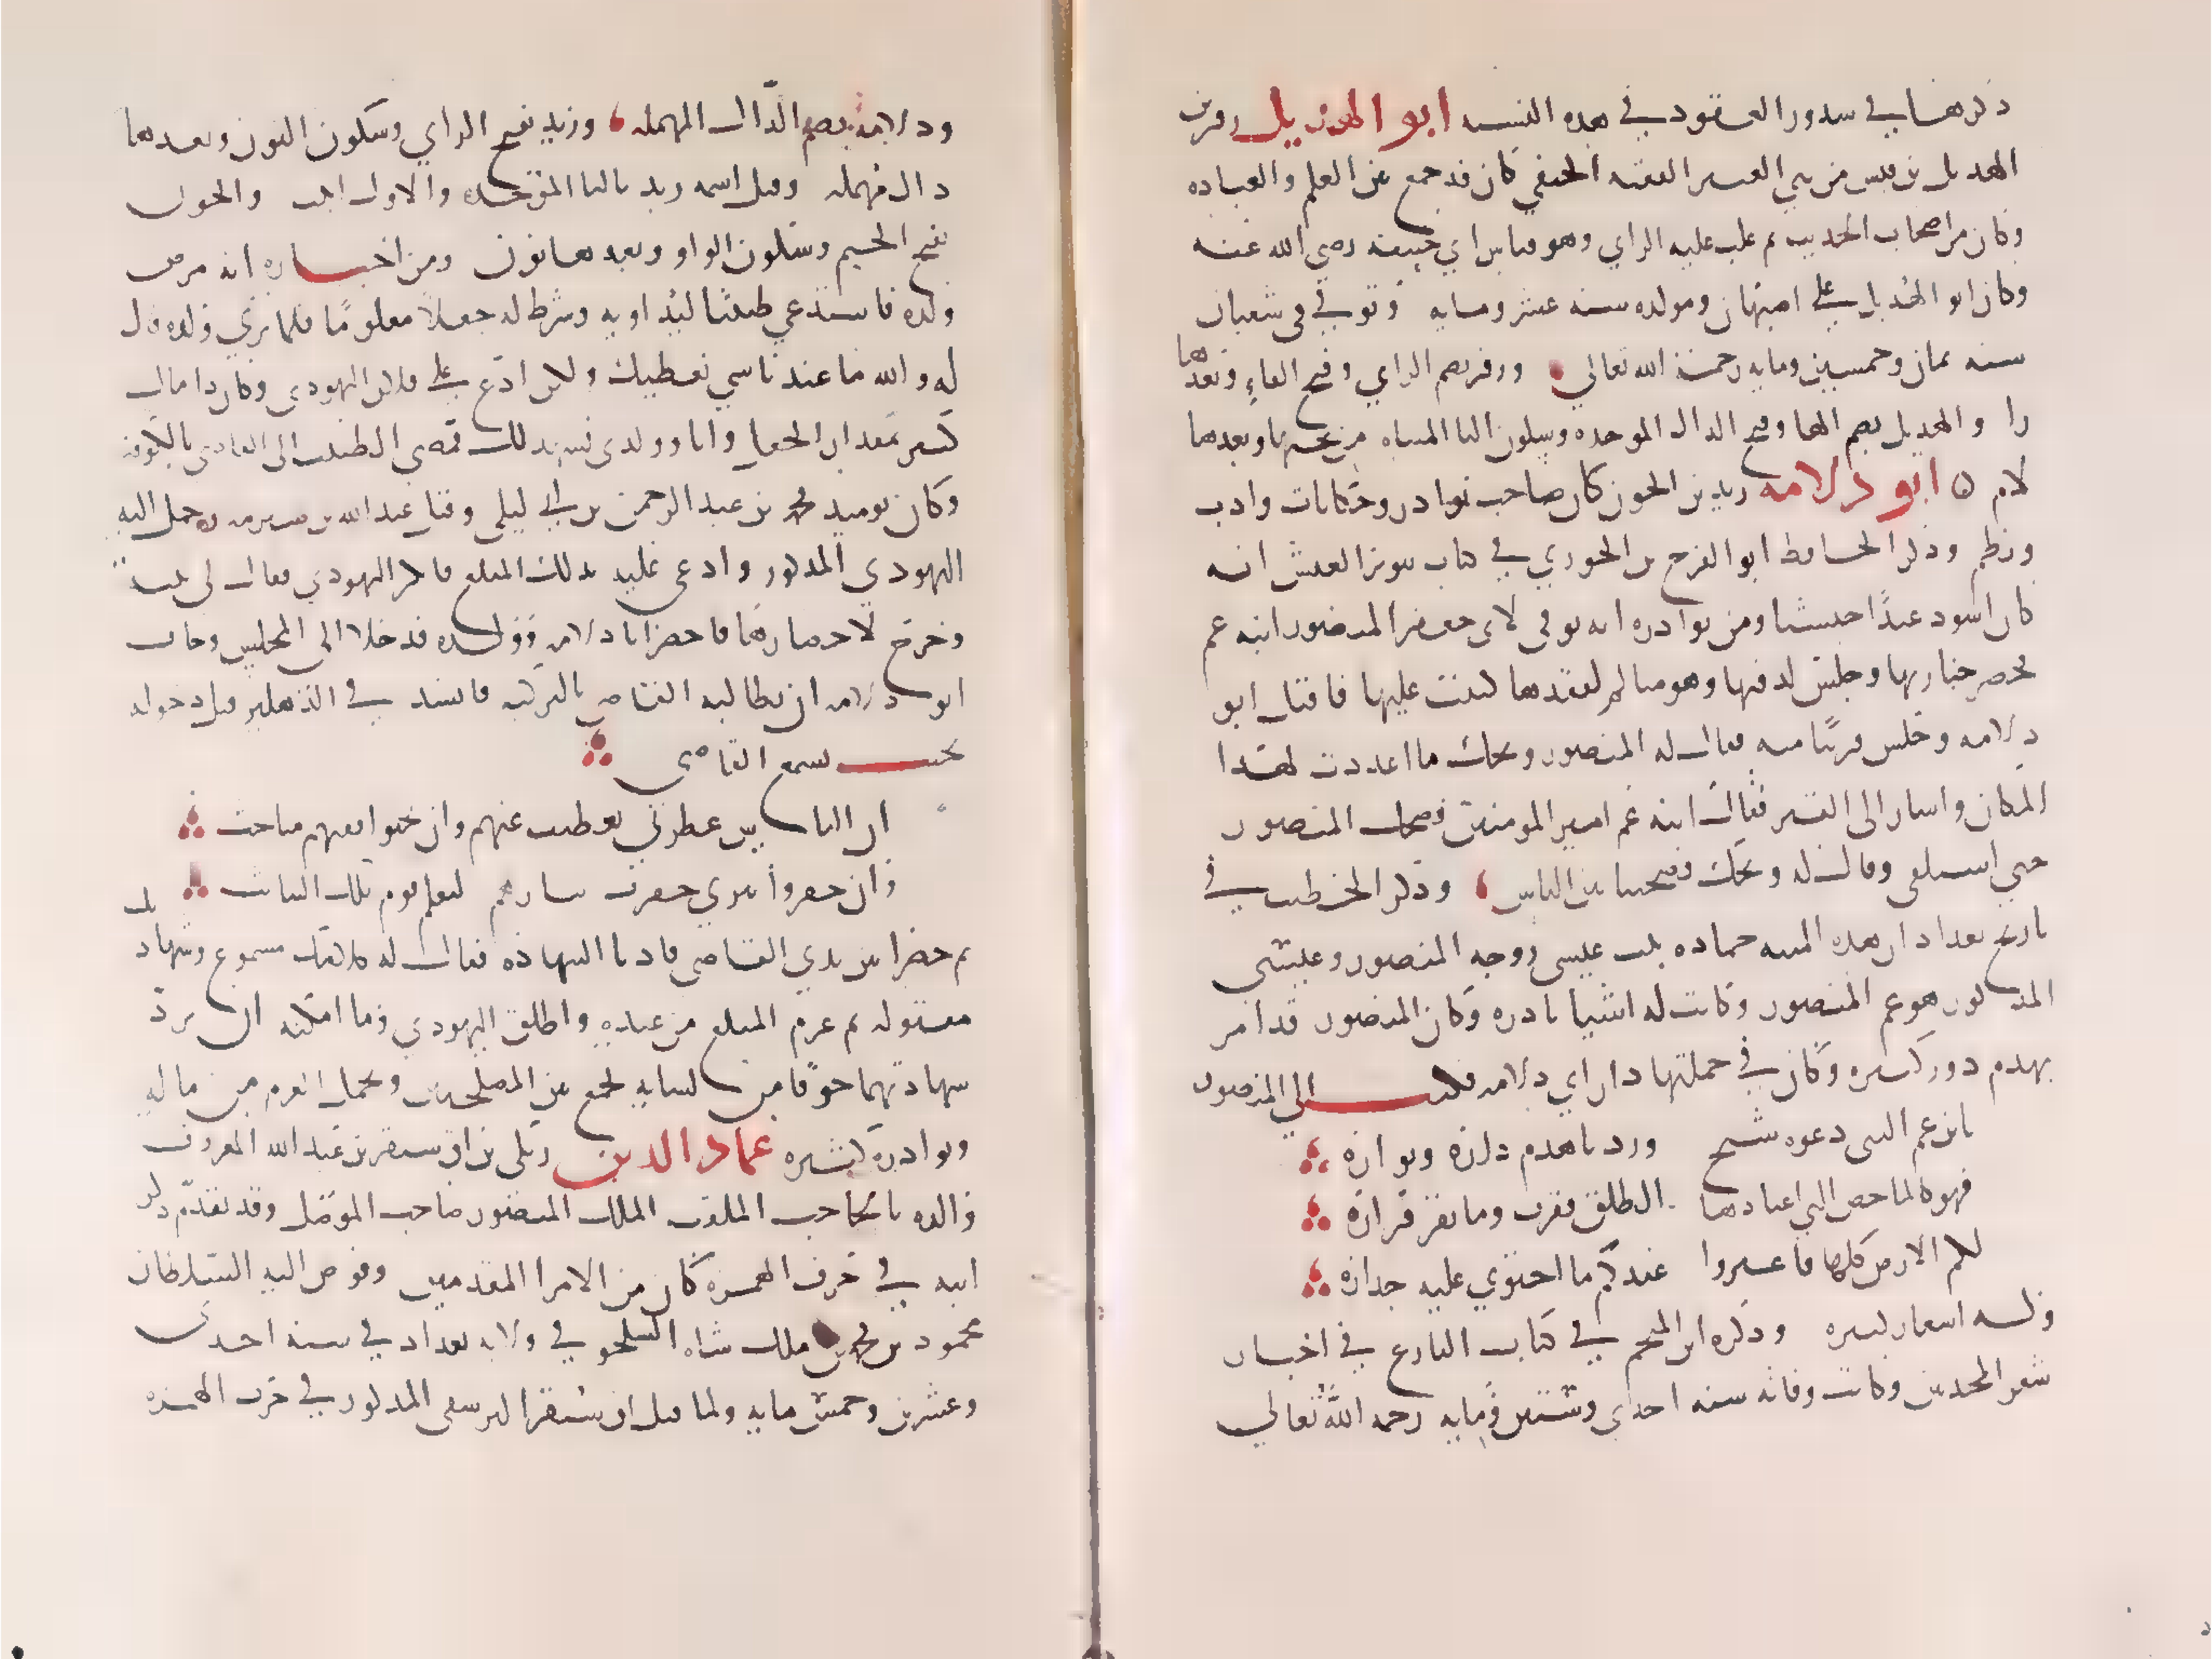 ذكرها في شذور العقود في هذه النسبه ابو الهذيل زفر بن
الهذيل بن قيس من بني العنبر الفقيه الحنفي كان قد جمع بين العلم والعباده
وكان من اصحاب الحديث ثم غلب عليه الراي وهو قياس ابي حنيفه رضي الله عنه
وكان ابو الهذيل على اصبهان ومولده سنه عشر ومايه وتوفي في شعبان
سنه ثمان وخمسين ومايه رحمه الله تعالى وزفر بضم الزاي وفتح الفاء وبعدها
را والهذيل بضم الها وفتح الدال الموحده وسكون اليا المثناه من تحتها وبعدها
لام ابو دلامه زند بن الجون كان صاحب نوادر وحكايات وادب
ونظم وذكر الحافظ ابو الفرج بن الجوزي في كتاب تنوير الغبش انه
كان اسود عبدًا حبشيا ومن نوادره انه توفي لابي جعفر المنصور ابنه عم
فحضر جنازتها وجلس لدفنها وهو متالم لفقدها كئيب عليها فاقبل ابو
دلامه وجلس قريبًا منه فقال له المنصور ويحك ما اعددت لهذا
المكان واشار الى القبر فقال ابنه عم امير المومنين فضحك المنصور
حتى استلقى وقال له ويحك فضحتنا بين الناس وذكر الخطيب في
تاريخ بغداد ان هذه الميته حماده بنت عيسى زوجه المنصور وعيسى
المذكور هو عم المنصور وكانت له اشيا نادره وكان المنصور قد امر
بهدم دور كثيره وكان في جملتها دار ابي دلامه فكتب الى المنصور
يابن عم النبي دعوه شيخ ورد ناهدم داره وبواره
فهو كالماخض التي اعتادها الطلق فقرت وما يقر قراره
لكم الارض كلها فاعيروا عبدكم ما احتوى عليه جداره
وله اشعار كثيره وذكره ابن المنجم في كتاب البارع في اخبار
شعر المحدثين وكانت وفاته سنه احدى وستين ومايه رحمه الله تعالى
ودلامه بضم الدّال المهمله وزند بفتح الزاي وسكون النون وبعدها
دال مهمله وقيل اسمه زبد بالبا الموحده والاول اثبت والجون
بفتح الجيم وسكون الواو وبعدها نون ومن اخباره انه مرض
ولده فاستدعى طبيبًا ليداويه وشرط له جعلاً معلومًا فلما بري ولده قال
له والله ما عندنا شي نعطيك ولكن ادّع على فلان اليهودي وكان ذا مال
كثير بمقدار الجعل وانا وولدي نشهد لك فمضى الطبيب الى القاضي بالكوفه
وكان يوميذ محمد بن عبد الرحمن بن ابي ليلى وقيل عبد الله بن شبرمه وحمل اليه
اليهودي المذكور وادعى عليه بذلك المبلغ فانكر اليهودي فقال لي بينه
وخرج لاحضارها فاحضر ابا دلامه وولده فدخلا الى المجلس وخاف
ابو دلامه ان يطالبه القاضي بالتزكيه فانشد في الدهليز قبل دخوله
بحيث يسمع القاضي
ان الناس غطوني تغطيت عنهم وان بحثوا ففيهم مباحث
وان حفروا بيري حفرت بيارهم ليعلم قوم تلك النبائث
ثم حضرا بين يدي القاضي فاديا الشهاده فقال له كلامك مسموع وشهادتك
مقبوله ثم غرم المبلغ من عنده واطلق اليهودي وما امكنه ان يردّ
شهادتهما خوفًا من لسانه فجمع بين المصلحتين وتحمل الغرم من ماله
ونوادره كثيره عماد الدين زنكي بن اق سنقر بن عبد الله المعروف
والده بالحاجب الملقب الملك المنصور صاحب الموصل وقد تقدّم ذكر
ابيه في حرف الهمزه كان من الامرا المقدمين وفوض اليه السلطان
محمود بن محمد بن ملك شاه السلجوقي ولايه بغداد في سنه احدى
وعشرين وخمس مايه ولما قتل اق سنقر البرسقي المذكور في حرف الهمزه